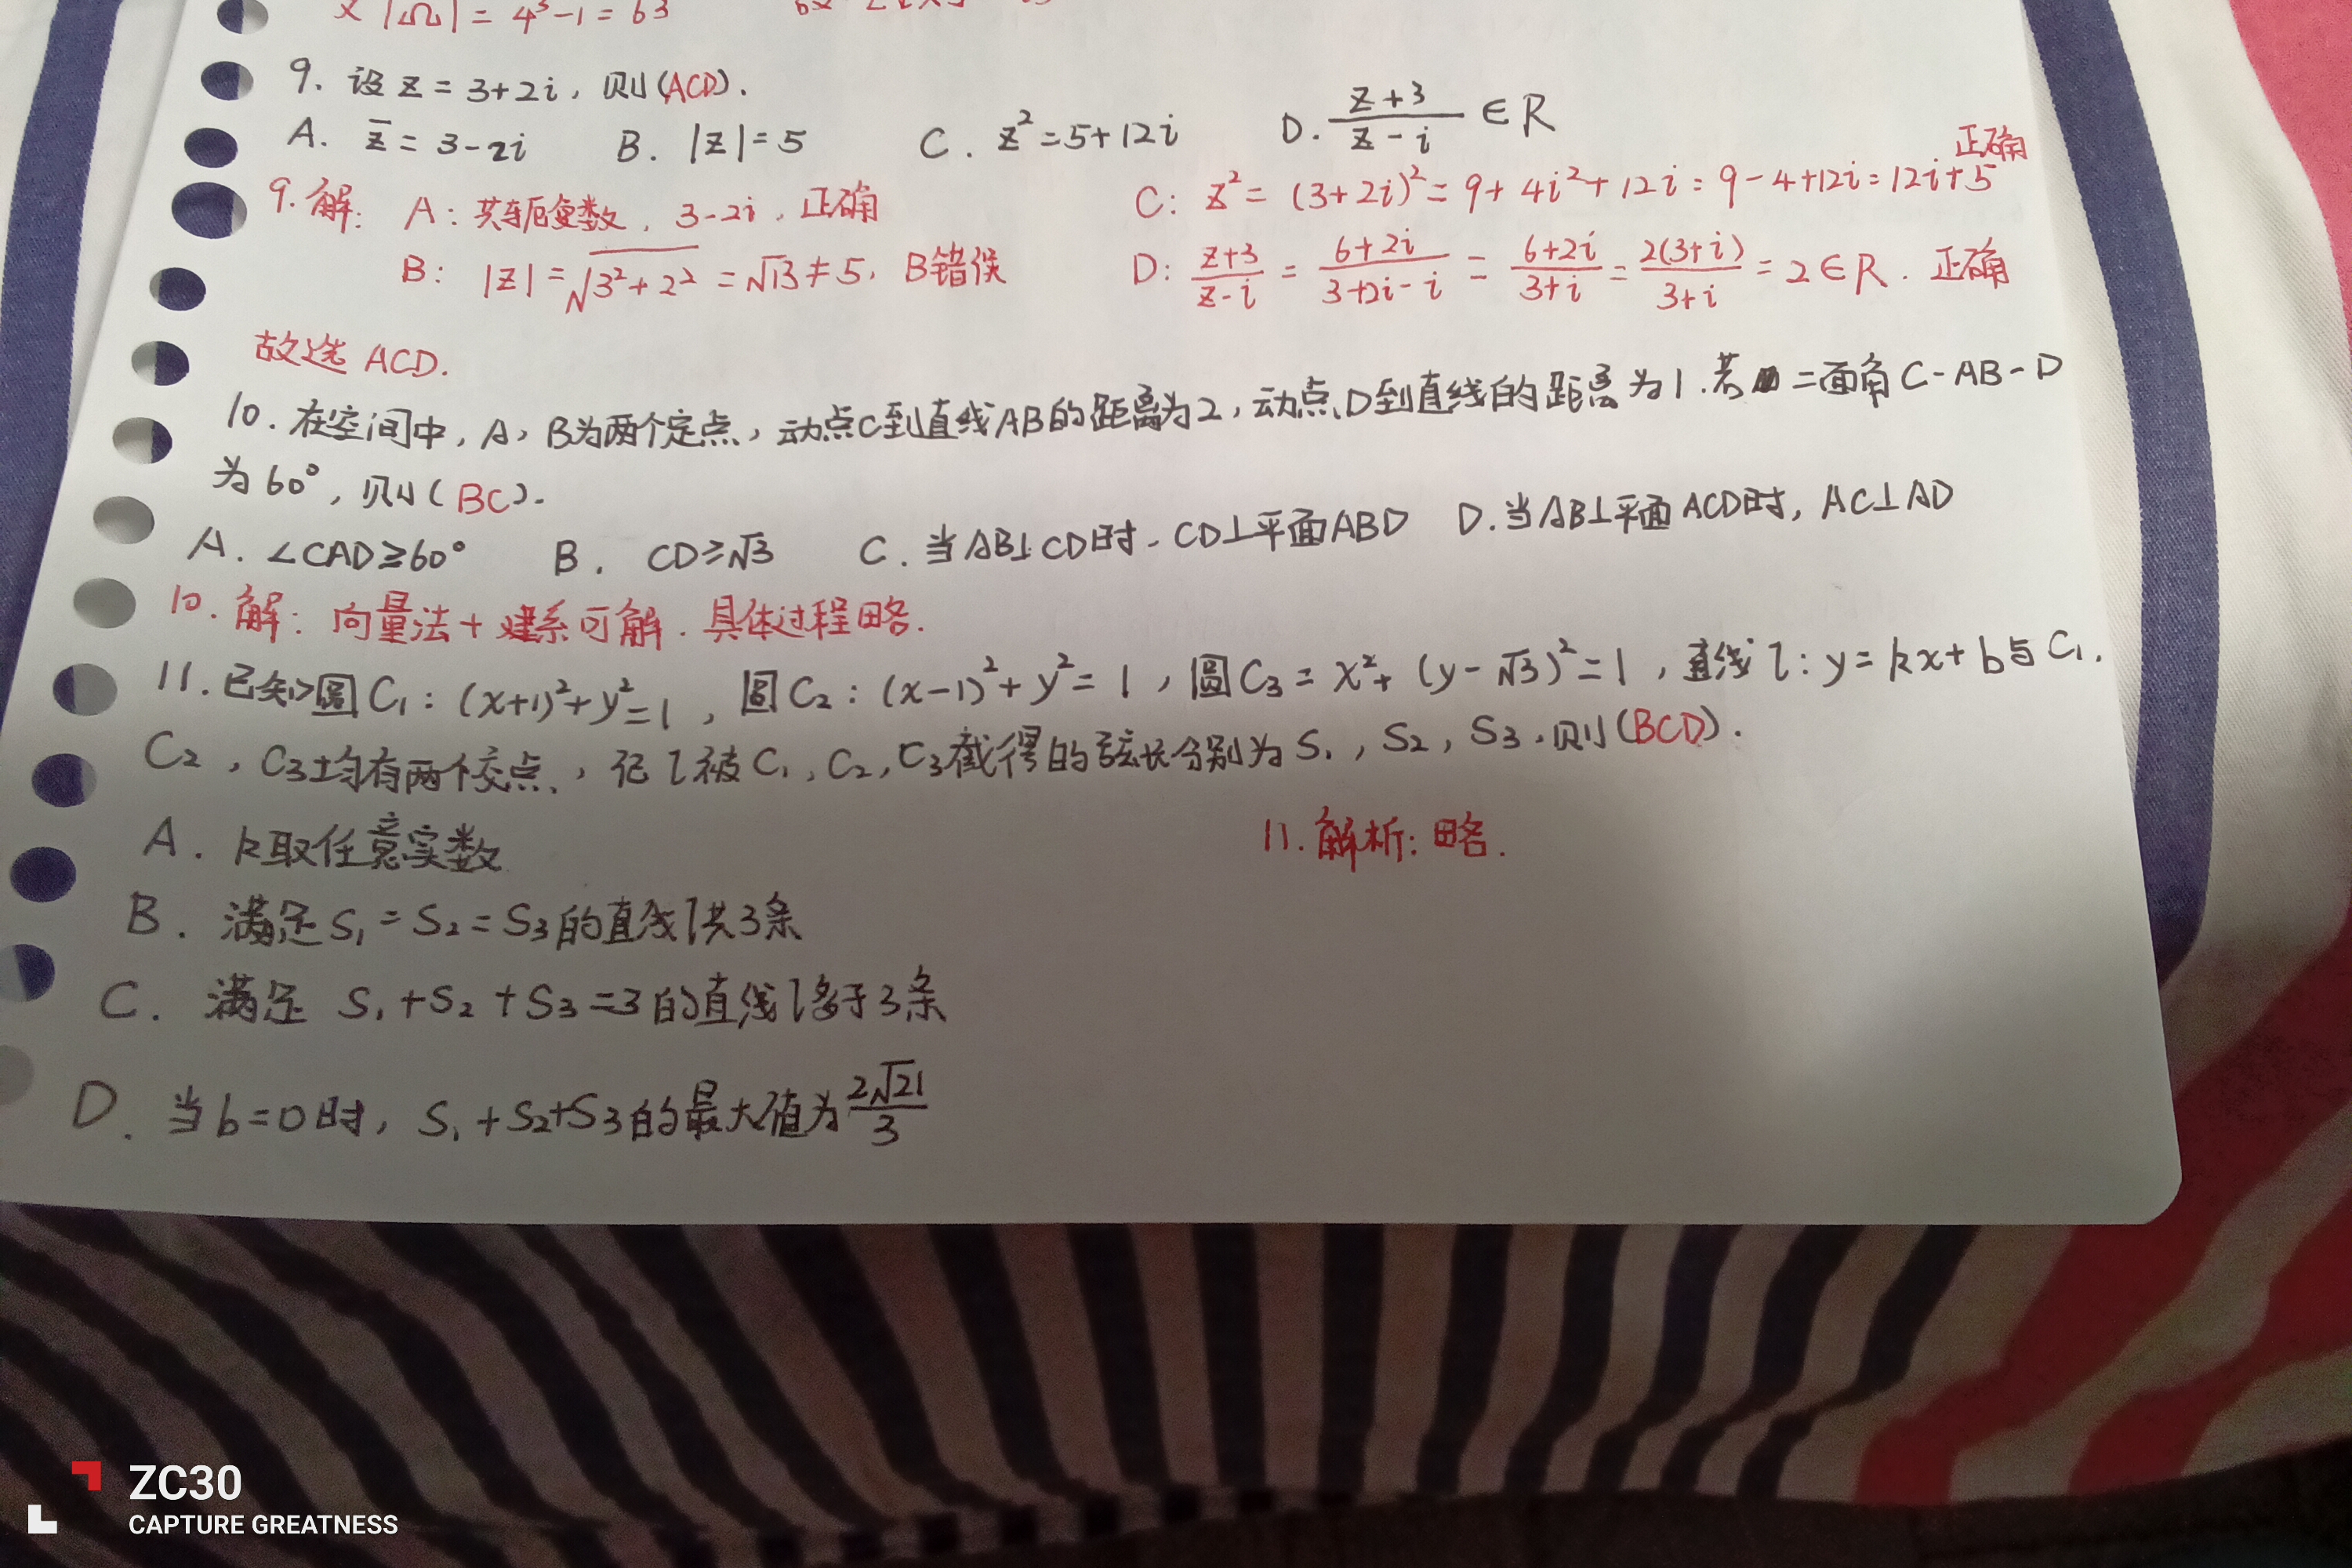 又|Ω|= 4³-1 = 63
9. 设 z = 3+2i, 则(ACD).
A. z̅ = 3-2i B. |z|=5 C. z²=5+12i D. \frac{z+3}{z-i} ∈ R
9.解: A: 共轭复数, 3-2i, 正确 C: z² = (3+2i)² = 9+4i²+12i = 9-4+12i = 12i+5 正确
B: |z| = √(3²+2²) = √13 ≠ 5, B错误 D: \frac{z+3}{z-i} = \frac{6+2i}{3+2i-i} = \frac{6+2i}{3+i} = \frac{2(3+i)}{3+i} = 2∈R. 正确
故选 ACD.
10. 在空间中, A, B为两个定点, 动点C到直线AB的距离为2, 动点D到直线的距离为1.若 二面角C-AB-D
为60°, 则(BC).
A. ∠CAD≥60° B. CD≥√3 C. 当AB⊥CD时, CD⊥平面ABD D.当AB⊥平面ACD时, AC⊥AD
10.解: 向量法+建系可解. 具体过程略.
11.已知圆C₁: (x+1)²+y²=1, 圆C₂: (x-1)²+y²=1, 圆C₃=x²+(y-√3)²=1, 直线l: y=kx+b与C₁.
C₂, C₃均有两个交点, 记l被C₁, C₂, C₃截得的弦长分别为S₁, S₂, S₃,则(BCD).
A. k取任意实数
11.解析: 略.
B. 满足S₁=S₂=S₃的直线l共3条
C. 满足 S₁+S₂+S₃=3的直线l多于3条
D. 当b=0时, S₁+S₂+S₃的最大值为\frac{2√21}{3}
ZC30
CAPTURE GREATNESS